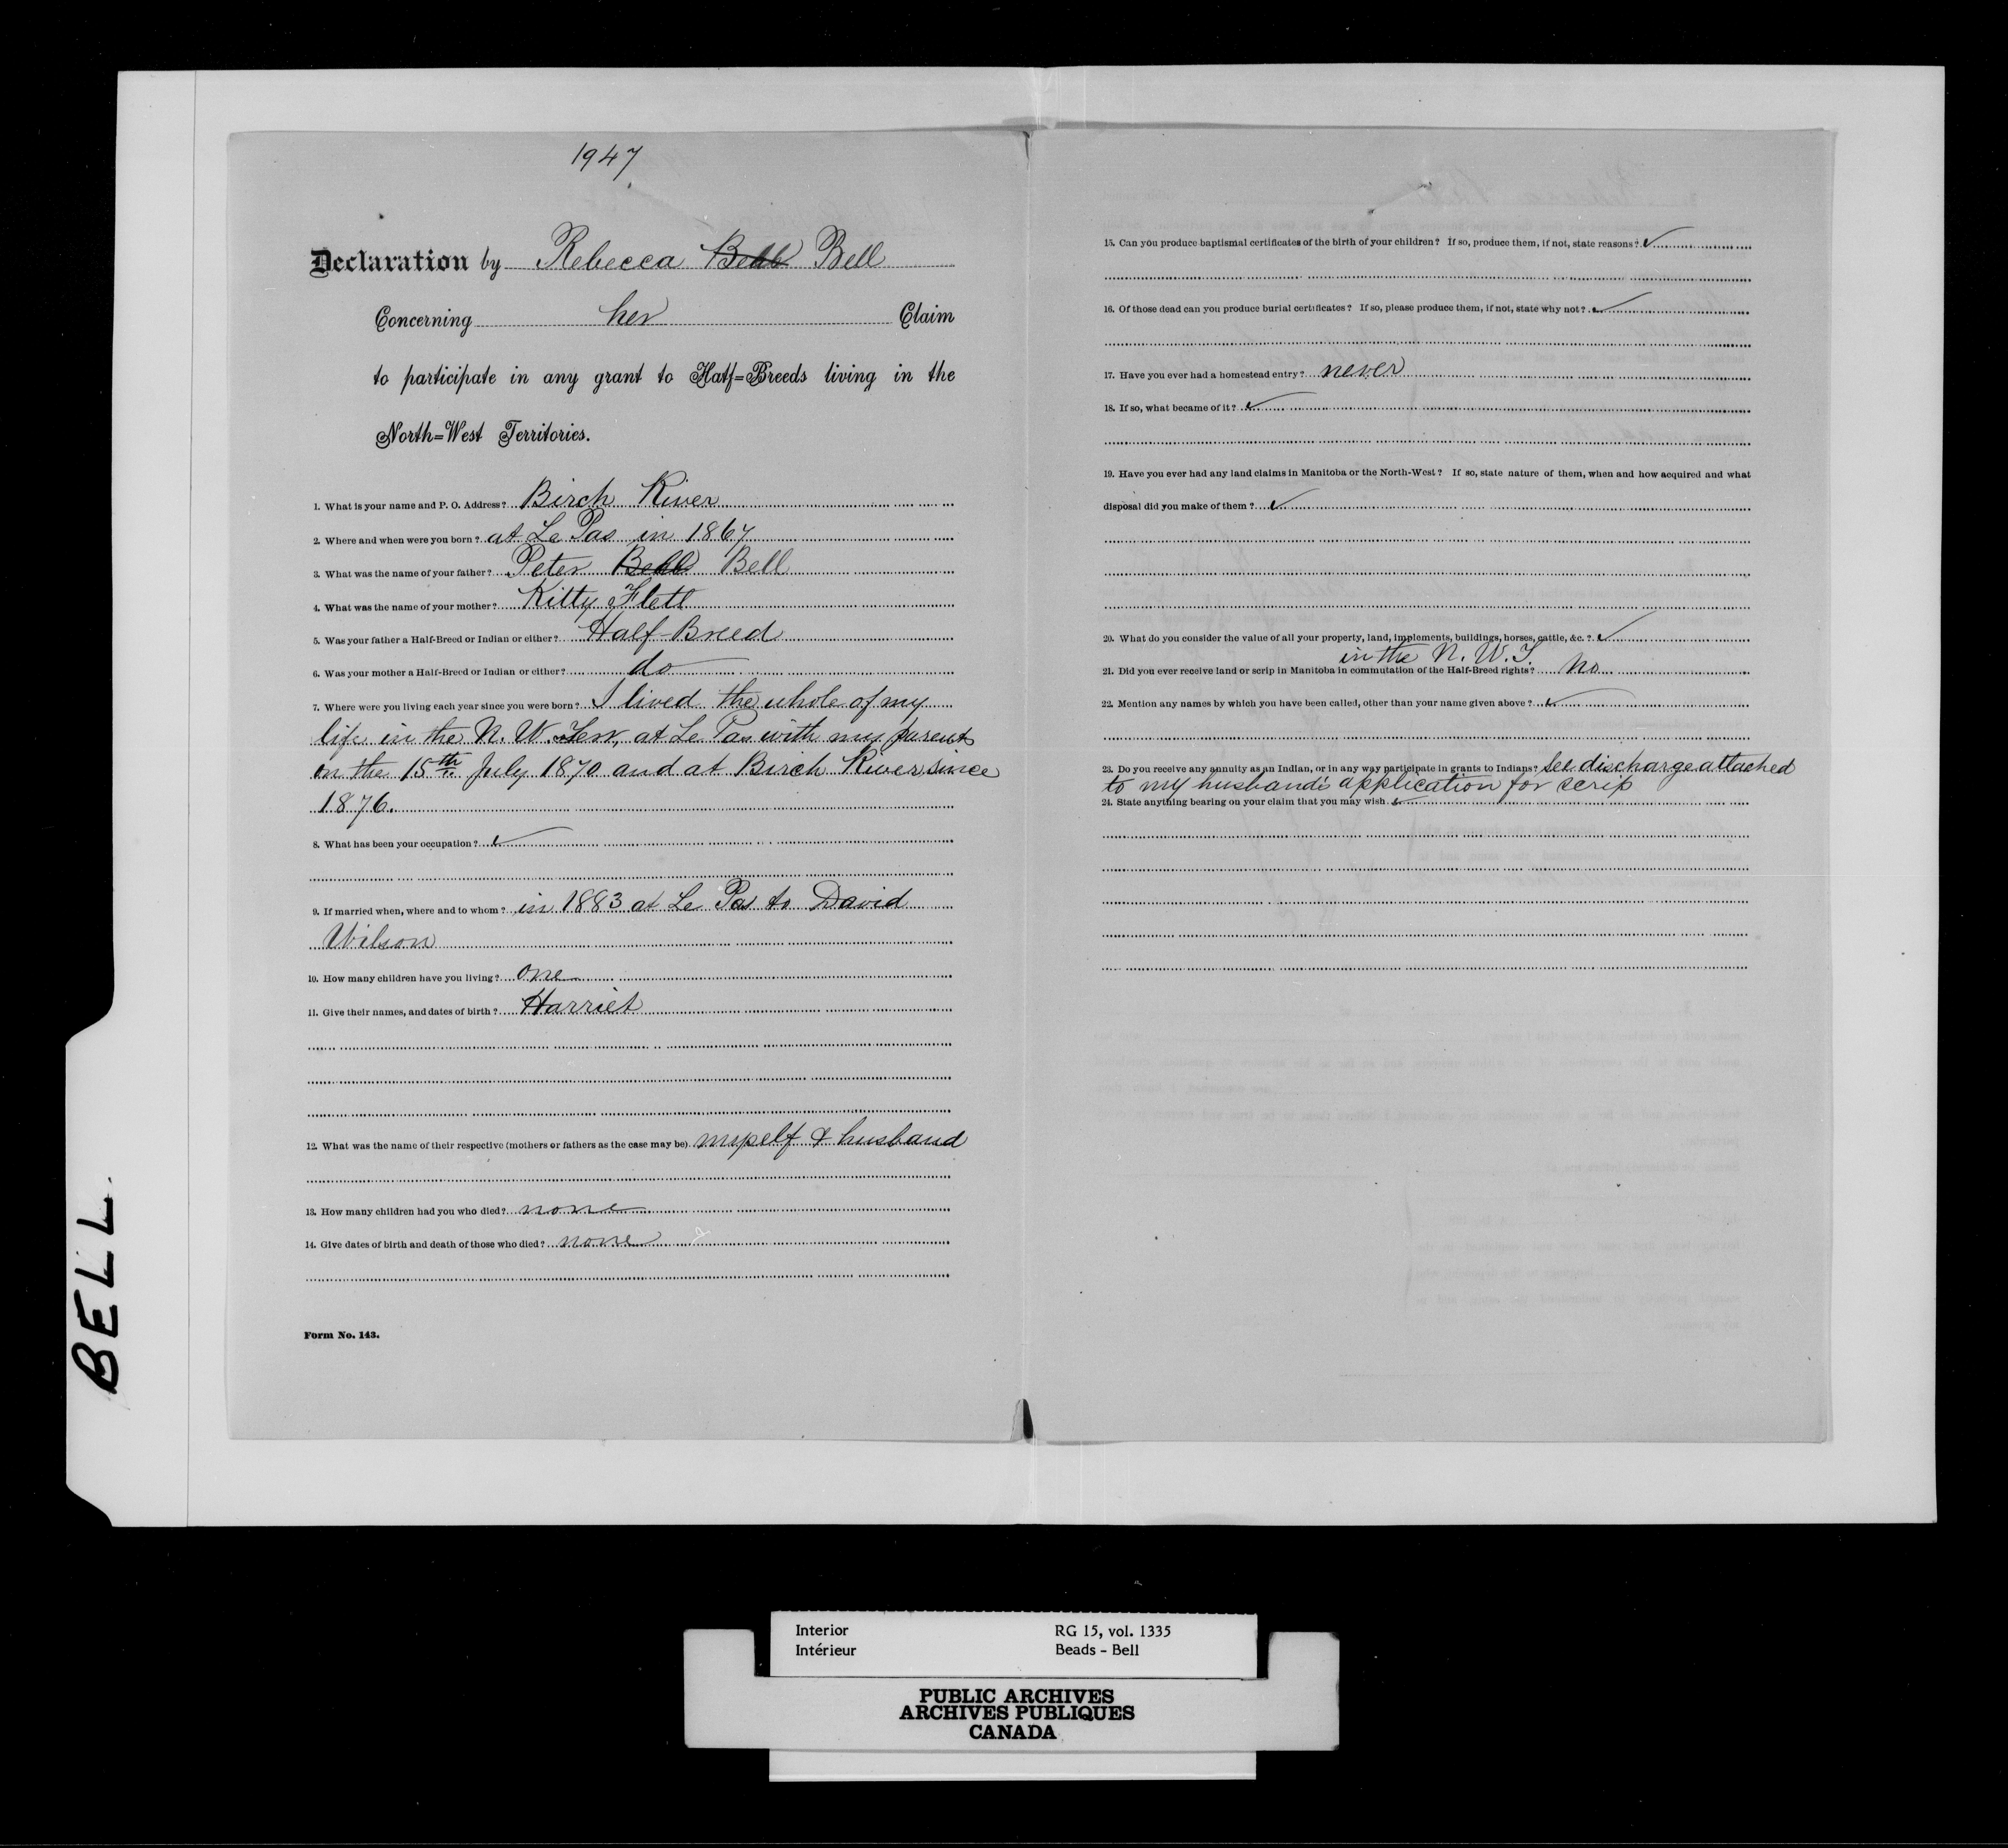 1947
Declaration by Rebecca Beal Bell
Concerning her Claim
to participate in any grant to Half=Breeds living in the
North=West Territories.
1. What is your name and P. O. Address? Birch River
2. Where and when were you born? at Le Pas in 1867
3. What was the name of your father? Peter Beal Bell
4. What was the name of your mother? Kitty Flett
5. Was your father a Half-Breed or Indian or either? Half-Breed
6. Was your mother a Half-Breed or Indian or either? do
7. Where were you living each year since you were born? I lived the whole of my
life in the N. W. Terr, at Le Pas with my parents
on the 15th July 1870 and at Birch River since
1876.
8. What has been your occupation? ✓
9. If married when, where and to whom? in 1883 at Le Pas to David
Wilson
10. How many children have you living? one
11. Give their names, and dates of birth? Harriet
12. What was the name of their respective (mothers or fathers as the case may be). myself & husband
13. How many children had you who died? none
14. Give dates of birth and death of those who died? none
Form No. 143.
15. Can you produce baptismal certificates of the birth of your children? If so, produce them, if not, state reasons? ✓
16. Of those dead can you produce burial certificates? If so, please produce them, if not, state why not? ✓
17. Have you ever had a homestead entry? never
18. If so, what became of it? ✓
19. Have you ever had any land claims in Manitoba or the North-West? If so, state nature of them, when and how acquired and what
disposal did you make of them? ✓
20. What do you consider the value of all your property, land, implements, buildings, horses, cattle, &c.? ✓
in the N. W. T.
21. Did you ever receive land or scrip in Manitoba in commutation of the Half-Breed rights? no
22. Mention any names by which you have been called, other than your name given above? ✓
23. Do you receive any annuity as an Indian, or in any way participate in grants to Indians? See discharge attached
to my husband's application for scrip
24. State anything bearing on your claim that you may wish. ✓
BELL.
Interior RG 15, vol. 1335
Intérieur Beads - Bell
PUBLIC ARCHIVES
ARCHIVES PUBLIQUES
CANADA